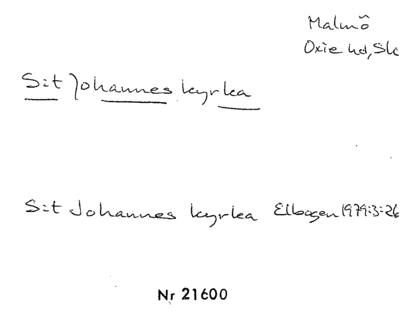 Malmö
Oxie hd, Sk
S:t Johannes kyrka
S:t Johannes kyrka Elbogen 1979:3:26
Nr 21600